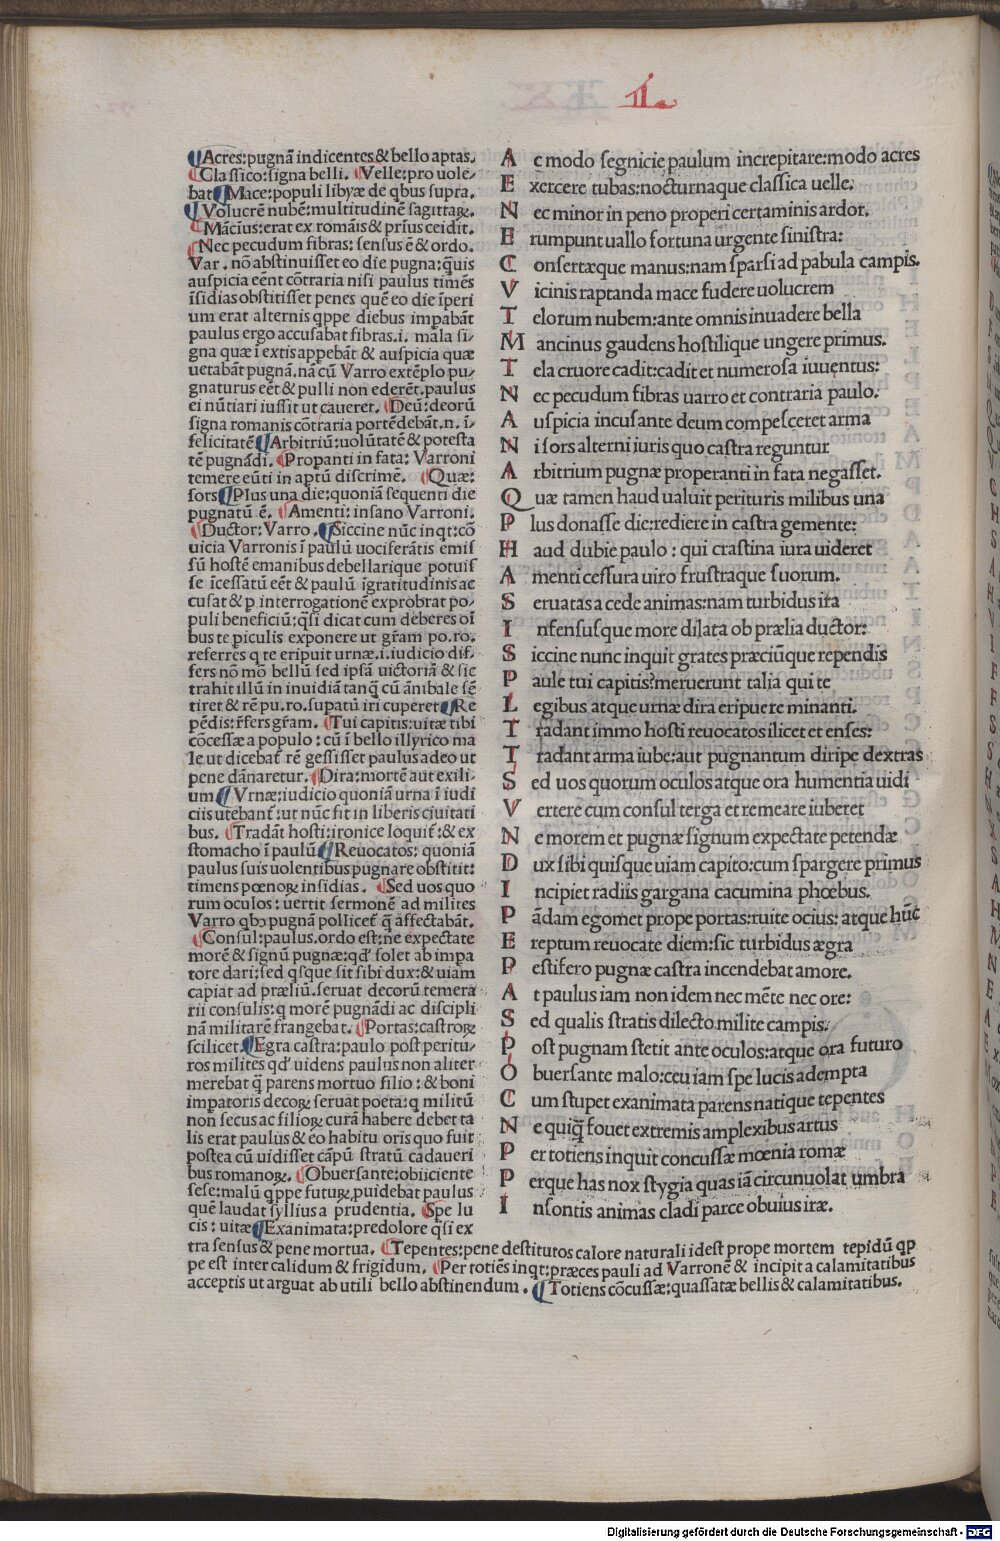 L
¶Acres:pugnã indicentes & bello aptas.
¶Classico:signa belli. ¶Velle:pro uole-
bat ¶Mace:populi libyæ de qbus supra.
¶Volucrẽ nubẽ:multitudinẽ sagittaꝝ.
¶Mãcius:erat ex romãis & prĩus ceidit.
¶Nec pecudum fibras: sensus ẽ & ordo.
Var. nõ abstinuisset eo die pugna:q̃uis
auspicia eẽnt cõtraria nisi paulus timẽs
ĩsidias obstitisset penes quẽ eo die ĩperi
um erat alternis qppe diebus impabãt
paulus ergo accusabat fibras.i. mala si-
gna quæ ĩ extis appebãt & auspicia quæ
uetabãt pugnã.nã cũ Varro extẽplo pu-
gnaturus eẽt & pulli non ederẽt.paulus
ei nũtiari iussit ut caueret. ¶Deũ:deorũ
signa romanis cõtraria portẽdebãt.n. ĩ-
felicitatẽ ¶Arbitriũ:uolũtatẽ & potesta
tẽ pugnãdi. ¶Propanti in fata: Varroni
temere eũti in aptũ discrimẽ. ¶Quæ:
sors ¶Plus una die:quoniã sequenti die
pugnatũ ẽ. ¶Amenti: insano Varroni.
¶Ductor: Varro. ¶Siccine nũc inqt:cõ
uicia Varronis ĩ paulũ uociferãtis emis
sũ hostẽ emanibus debellarique potuis
se ĩcessatũ eẽt & paulũ ĩgratitudinis ac
cusat & p interrogationẽ exprobrat po-
puli beneficiũ:q̃si dicat cum deberes oĩ
bus te piculis exponere ut gr̃am po.ro.
referres q te eripuit urnæ.i.iudicio dif-
fers nõ mõ bellũ sed ipsã uictoriã & sic
trahit illũ in inuidiã tanq̃ cũ ãnibale sẽ
tiret & rẽ pu.ro.supatũ iri cuperet ¶Re
pẽdis:r̃fers gr̃am. ¶Tui capitis:uitæ tibi
cõcessæ a populo: cũ ĩ bello illyrico ma
le ut dicebat̃ rẽ gessisset paulus adeo ut
pene dãnaretur. ¶Dira:mortẽ aut exili-
um ¶Vrnæ:iudicio quoniã urna ĩ iudi
ciis utebant̃:ut nũc fit in liberis ciuitati
bus. ¶Tradãt hosti:ironice loquit̃:& ex
stomacho ĩ paulũ ¶Reuocatos: quoniã
paulus suis uolentibus pugnare obstitit:
timens pœnoꝝ insidias. ¶Sed uos quo
rum oculos: uertit sermonẽ ad milites
Varro qbꝰ pugnã pollicet̃ q̃ affectabãt.
¶Consul:paulus.ordo est:ne expectate
morẽ & signũ pugnæ:qđ solet ab impa
tore dari:sed qsque sit sibi dux:& uiam
capiat ad præliũ.seruat decorũ temera
rii consulis:q morẽ pugnãdi ac discipli
nã militarẽ frangebat. ¶Portas:castroꝝ
scilicet. ¶Egra castra:paulo post peritu-
ros milites qđ uidens paulus non aliter
merebat q̃ parens mortuo filio: & boni
impatoris decoꝝ seruat poeta:q militũ
non secus ac filioꝝ curã habere debet ta
lis erat paulus & eo habitu oris quo fuit
postea cũ uidisset cãpũ stratũ cadaueri
bus romanoꝝ. ¶Obuersante:obiiciente
sese:malũ qppe futuꝝ puidebat paulus
quẽ laudat syllius a prudentia. ¶Spe lu
cis: uitæ ¶Exanimata:predolore q̃si ex
tra sensus & pene mortua. ¶Tepentes:pene destitutos calore naturali idest prope mortem tepidũ qp
pe est inter calidum & frigidum. ¶Per totiẽs inqt:præces pauli ad Varronẽ & incipit a calamitatibus
acceptis ut arguat ab utili bello abstinendum. ¶Totiens cõcussæ:quassatæ bellis & calamitatibus.
A c modo segnicie paulum increpitare:modo acres
E xercere tubas:nocturnaque classica uelle.
N ec minor in peno properi certaminis ardor.
E rumpunt uallo fortuna urgente sinistra:
C onsertæque manus:nam sparsi ad pabula campis.
V icinis raptanda mace fudere uolucrem
T elorum nubem:ante omnis inuadere bella
M ancinus gaudens hostilique ungere primus.
T ela cruore cadit:cadit et numerosa iuuentus:
N ec pecudum fibras uarro et contraria paulo.
A uspicia incusante deum compesceret arma
N i sors alterni iuris quo castra reguntur
A rbitrium pugnæ properanti in fata negasset.
Q uæ tamen haud ualuit perituris milibus una
P lus donasse die:rediere in castra gemente:
H aud dubie paulo: qui crastina iura uideret
A menti cessura uiro frustraque suorum.
S eruatas a cede animas:nam turbidus ira
I nfensusque more dilata ob prælia ductor:
S iccine nunc inquit grates præciũque rependis
P aule tui capitis?meruerunt talia qui te
L egibus atque urnæ dira eripuere minanti.
T radant immo hosti reuocatos ilicet et enses:
T radant arma iube:aut pugnantum diripe dextras
S ed uos quorum oculos atque ora humentia uidi
V ertere cum consul terga et remeare iuberet
N e morem et pugnæ signum expectate petendæ
D ux sibi quisque uiam capito:cum spargere primus
I ncipiet radiis gargana cacumina phœbus.
P ãdam egomet prope portas:ruite ocius: atque hũc
E reptum reuocate diem:sic turbidus ægra
P estifero pugnæ castra incendebat amore.
A t paulus iam non idem nec mẽte nec ore:
S ed qualis stratis dilecto milite campis.
P ost pugnam stetit ante oculos:atque ora futuro
O buersante malo:ceu iam spe lucis adempta
C um stupet exanimata parens natique tepentes
N e quiq̃ fouet extremis amplexibus artus
P er totiens inquit concussæ mœnia romæ
P erque has nox stygia quas iã circunuolat umbra
I nsontis animas cladi parce obuius iræ.
Digitalisierung gefördert durch die Deutsche Forschungsgemeinschaft - DFG